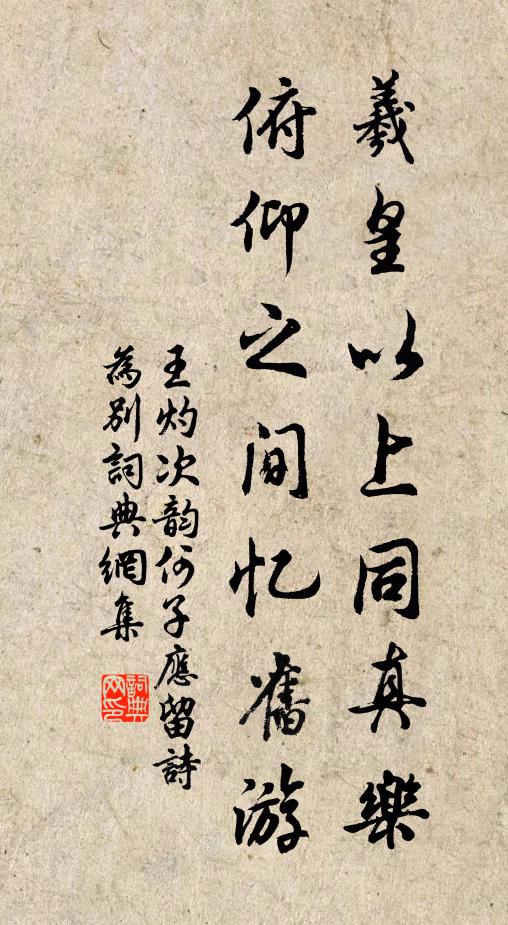 羲皇以上同真樂
俯仰之间忆舊游
王灼次韵何子應留詩
為别詞典網集
詞典
网印